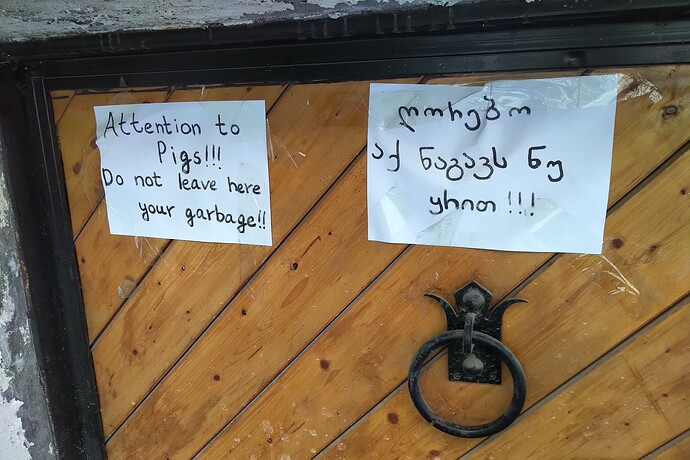 Attention to
Pigs!!!
Do not leave here
your garbage!!
ღორებო
აქ ნაგავს ნუ
ყრით!!!